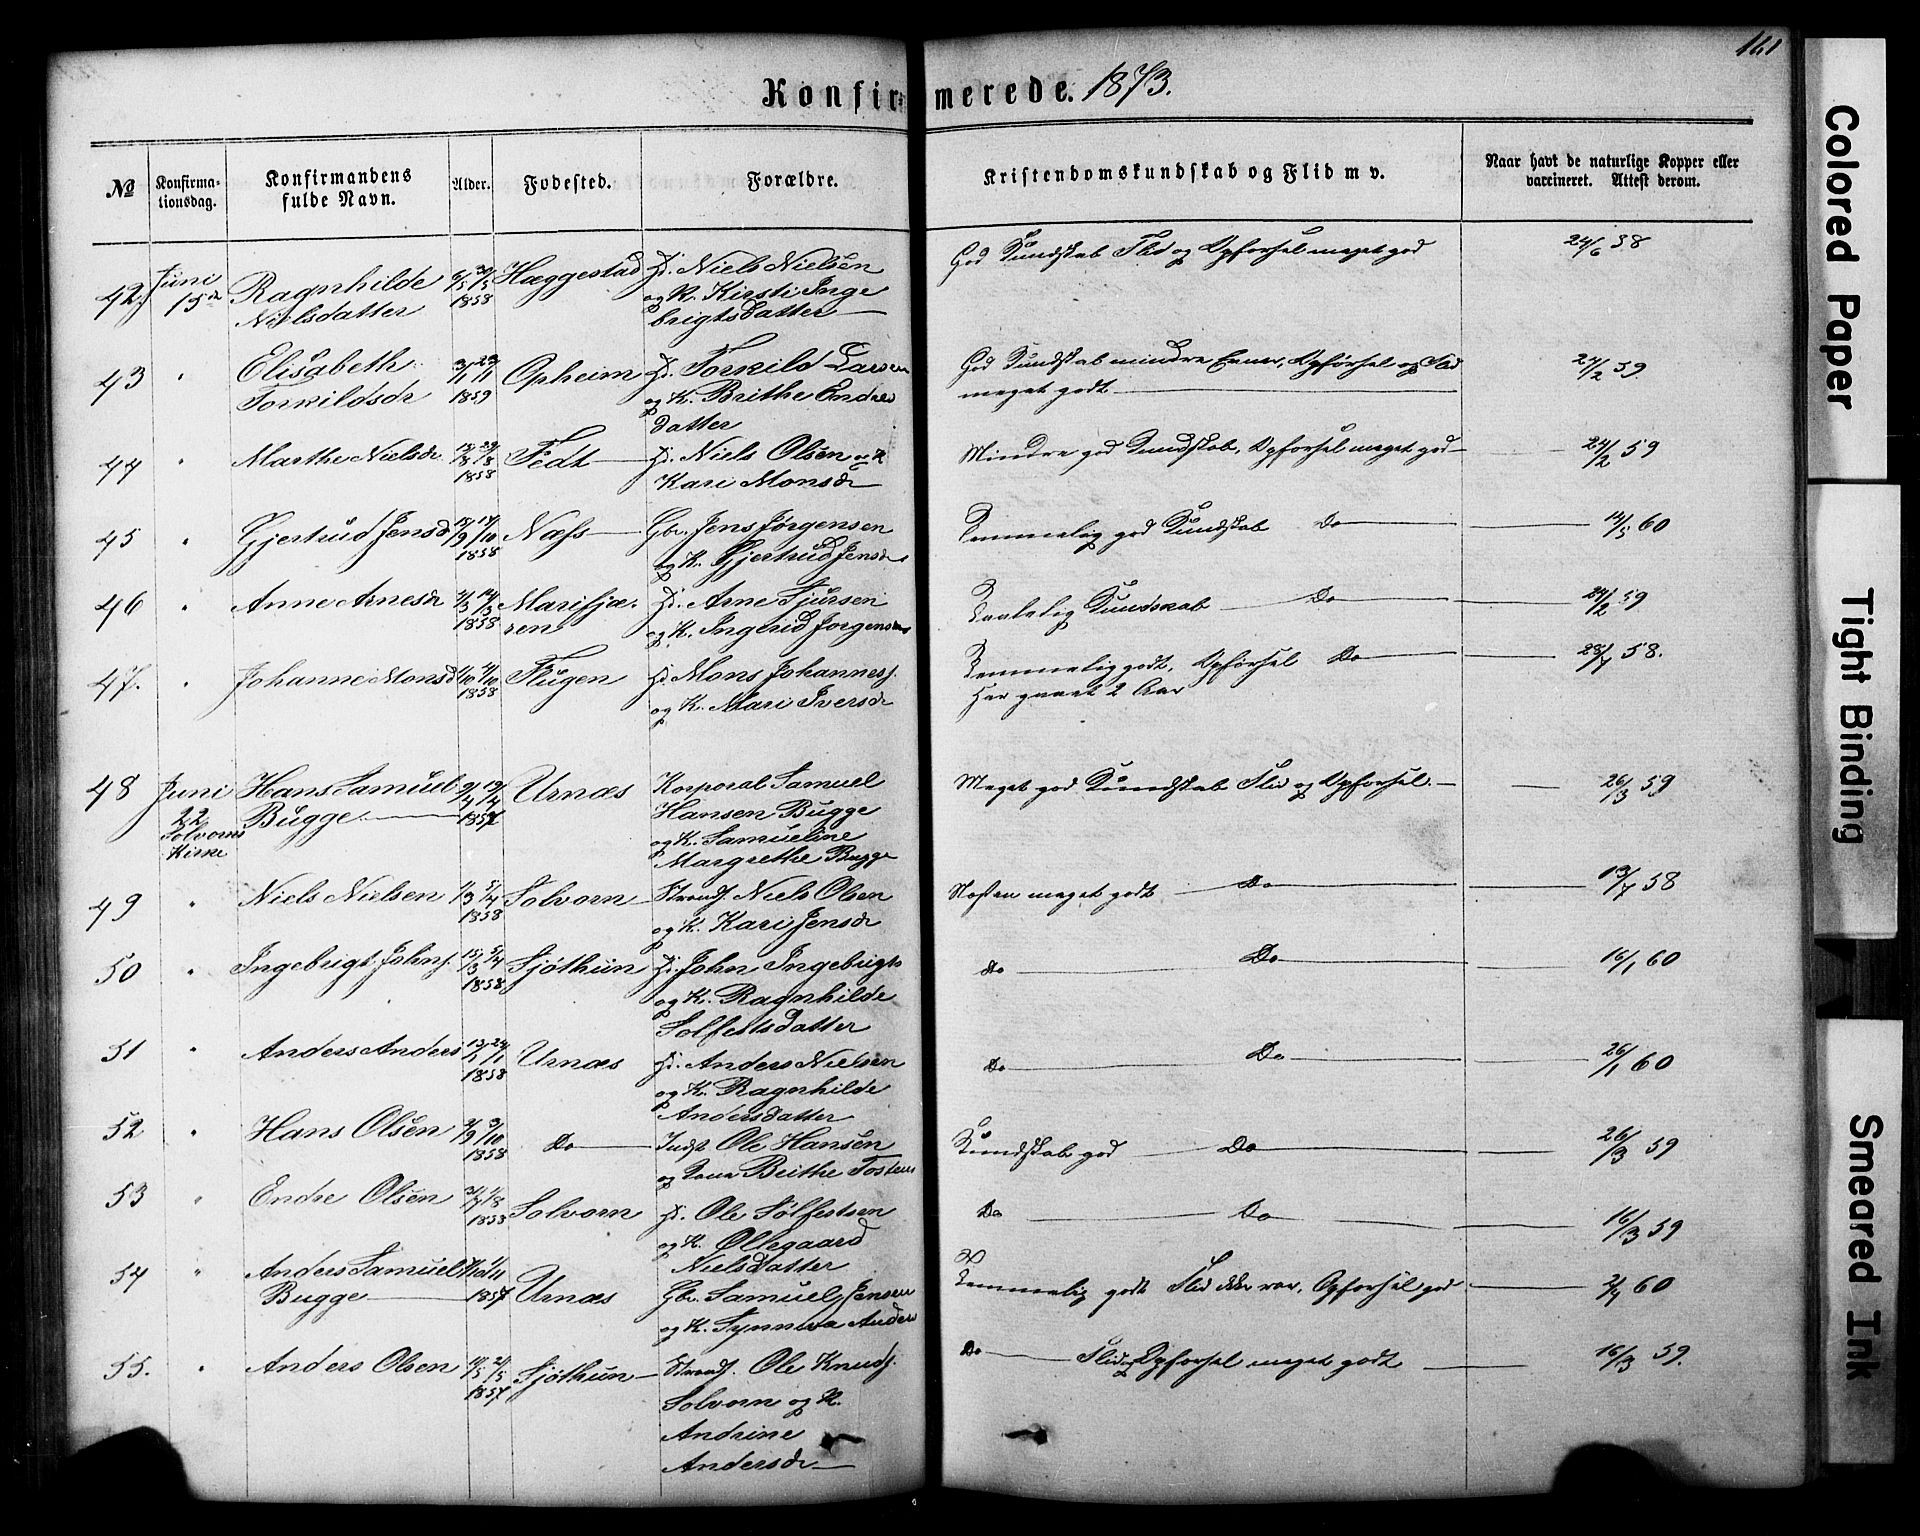 161
Konfirmerede. 1873.
№ Konfirmationsdag. Konfirmandens fulde Navn. Alder. Fødested. Forældre. Kristendomskundskab og Flid m v. Naar havt de naturlige Kopper eller vaccineret. Attest derom.
42 Juni 15de Ragnhilde Nielsdatter 1858 Hæggestad Niels Nielsen og K. Kirsti Ingebrigtsdatter God Kundskab Flid og Opførsel meget god 24/6 58
43 " Elisabeth Torkildsdr 1859 Opheim Torkild Larsen og K. Brithe Endresdatter God Kundskab mindre Evner, Opførsel og Flid meget godt 24/2 59
44 " Marthe Nielsdr 1858 Fedt Niels Olsen og K Kari Monsdr Mindre god Kundskab, Opførsel meget god 24/2 59
45 " Gjertrud Jensd 1858 Næss Gbr. Jens Jørgensen og K. Gjertrud Jensdr Temmelig god Kundskab Do 14/5 60
46 " Anne Arnesdr 1858 Marifjæren Arne Sjursen og K. Ingerid Jørgens Taalelig Kundskab Do 24/2 59
47. " Johanne Monsd 1858 Flugen Mons Johanness. og K. Mari Iversdr Temmelig godt, Opførsel Do 58.
Har gaaet 2 Aar
48 Juni 22 Solvorns Kirke Hans Samuel Bugge 1857 Urnæs Korporal Samuel Hansen Bugge og K. Samueline Margrethe Bugge Meget god Kundskab Flid og Opførsel. 26/3 59
49 " Niels Nielsen 1858 Solvorn Strands. Niels Olsen og K. Kari Jensdr Næsten meget godt Do 13/7 58
50 " Ingebrigt Johns. 1858 Sjøthun John Ingebrigts og K. Ragnhilde Solfestsdatter Do Do 16/1 60
51 " Anders Anders 1858 Urnæs Anders Nielsen og K. Ragnhilde Andersdatter Do Do 26/1 60
52 " Hans Olsen 1858 Do Indst Ole Hansen og Brithe Tostens Kundskab god Do 26/3 59
53 " Endre Olsen 1858 Solvorn Ole Solfestsen og K. Øllegaard Nielsdatter Do Do 16/3 59
54 " Anders Samuel Bugge 1857 Urnæs Gbr. Samuel Jensen og K. Synneva Anders Temmelig godt Flid Opførsel god 60
55. " Anders Olsen 1857 Sjøthun Strands. Ole Knuds. Solvorn og K. Andrine Andersdr Do Flid og Opførsel meget godt 16/3 59.
Colored Paper
Tight Binding
Smeared Ink